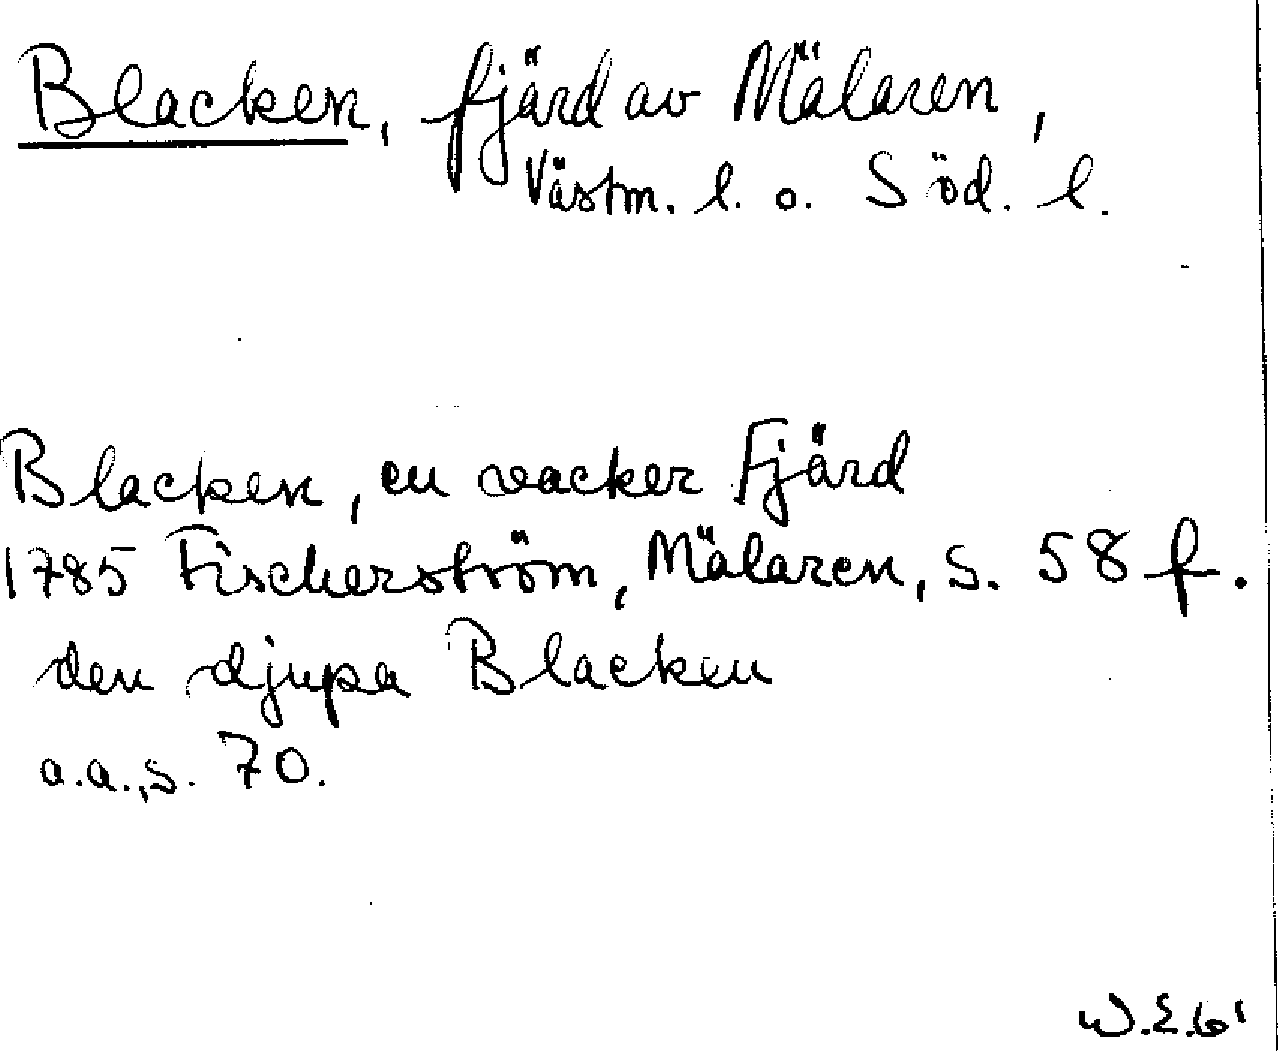 Blacken, fjärd av Mälaren,
Västm. l. o. Söd. l.
Blacken, en vacker Fjärd
1785 Fischerström, Mälaren, s. 58 f.
den djupa Blacken
a.a., s. 70.
W.E. 61